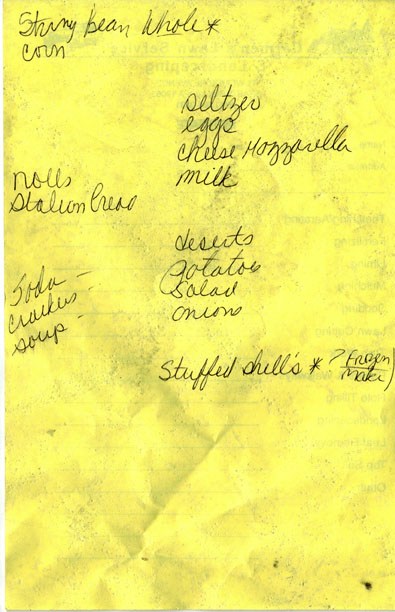 String bean Whole *
corn
seltzer
eggs
cheese Mozzarella
milk
rolls
Italian bread
deserts
potatoes
Salad
onions
Soda -
crackers -
soup -
Stuffed shell's * ? Frozen
Make)